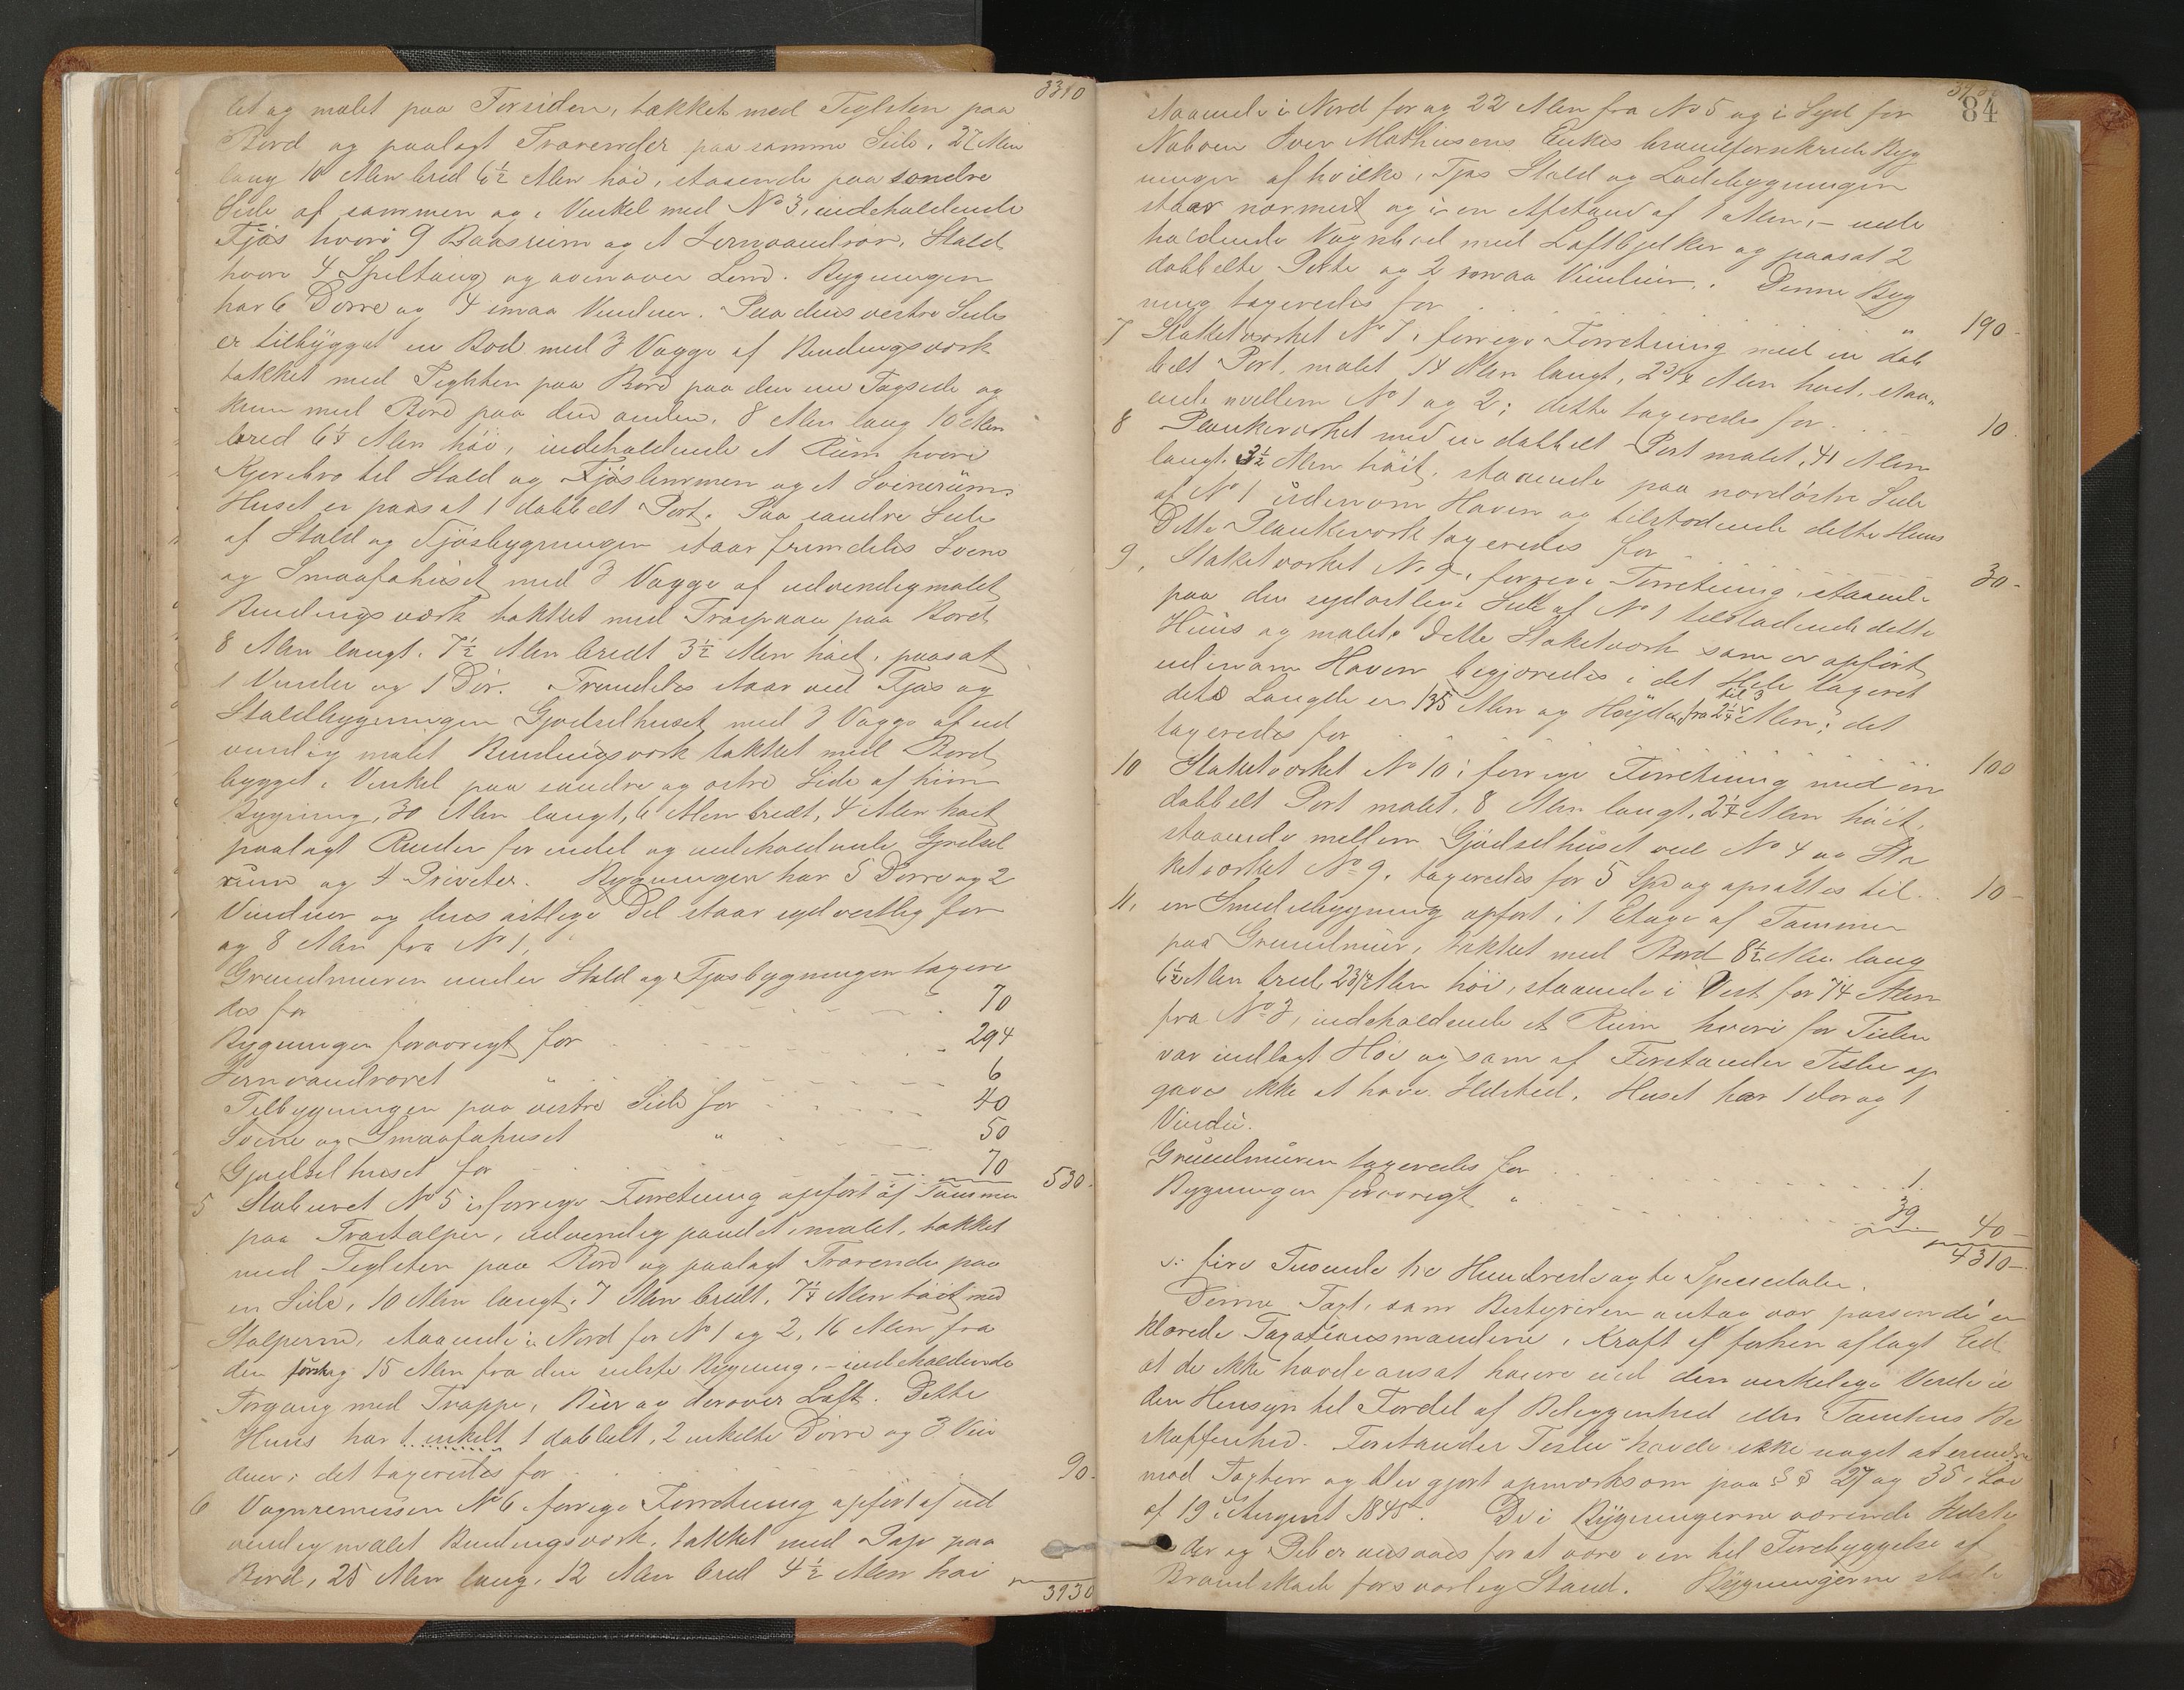 3310
let og malet paa Forsiden, tækket med Teglsten paa
Bord og paalagt Trærender paa samme Side, 27 Alen
lang 10 Alen bred 6½ Alen höi, staaende paa söndre
Side af sammen og i Vinkel med No 3, indeholdende
Fjös hvori 9 Baasrum og et Jernvandrör, Stald
hvori 4 Spiltaug og ovenover Lem. Bygningen
har 6 Dörre og 4 smaa Vinduer. Paa dens vestre Side
er tilbygget en Bod med 3 Vægge af Bindingsværk
tækket med Teglsten paa Bord paa den ene Tagside og
kun med Bord paa den anden, 8 Alen lang 10 Alen
bred 6¼ Alen höi, indeholdende et Rum hvori
Kjörebro til Stald og Fjöslemmen og et Svinerüm.
Huset er paasat 1 dobbelt Port. Paa söndre Side
af Stald og Fjösbygningen staar fremdeles Svine
og Smaafæhuset med 3 Vægge af udvendig malet
Bindingsværk tækket med Træspaan paa Bord
8 Alen langt, 7½ Alen bredt 3½ Alen höit, paasat
1 Vindu og 1 Dör. Fremdeles staar ved Fjös og
Staldbygningen Gjödselhuset med 3 Vægge af ud
vendig malet Bindingsværk tækket med Bord
bygget i Vinkel paa söndre og östre Side af hiin
Bygning, 30 Alen langt, 6 Alen bredt, 4 Alen höit
paalagt Render for endel og indeholdende Gjödsel
rum og 4 Priveter. Bygningen har 5 Dörre og 2
Vinduer og dens östlige Del staar sydvestlig for
og 8 Alen fra No 1.
Grundmuren under Stald og Fjösbygningen taxere
des for 70
Bygningen forövrigt for " 294
Jernvandröret " 6
Tilbygningen paa vestre Side for 40
Svine og Smaafæhuset " 50
Gjödselhuset for 70 530.
5 Stabüret No 5 i forrige Forretning opfört af Tömmer
paa Træstolper, udvendig pandet, malet, tækket
med Teglsten paa Bord og paalagt Trærende paa
en Side, 10 Alen langt, 7 Alen bredt, 7¼ Alen höit med
Stolperne, staaende i Nord for No 1 og 2, 16 Alen fra
den förste og 15 Alen fra den sidste Bygning, indeholdende
Forgang med Trappe, Bur og derover Loft. Dette
Huus har 1 enkelt 1 dobbelt, 2 enkelte Dörre og 3 Vin
duer; det taxeredes for 90.
6 Vognremissen No 6 i forrige Forretning opfört af ud
vendig malet Bindingsværk, tækket med Pap paa
Bord, 25 Alen lang, 12 Alen bred 4½ Alen höi
3930
84
staaende i Nord for og 22 Alen fra No 5 og i Syd for
Naboen Iver Mathiesens Enkes brandforsikrede Byg
ninger af hvilke, Fjös Stald og Ladebygningen
staar nærmest og i en Afstand af 1 Alen, – inde
holdende Vognbod med Loftbjelker og paasat 2
dobbelte Porte og 2 smaa Vinduer. Denne Byg
ning taxeredes for " 190-
7 Staketværket No 7 i forrige Forretning med en dob
belt Port, malet 14 Alen langt, 2 3/4 Alen höit, staa
ende mellem No 1 og 2; dette taxeredes for 10
8 Plankeværket med en dobbelt Port malet, 41 Alen
langt, 3½ Alen höit, staaende paa nordöstre Side
af No 1 udenom Haven og tilstödende dette Huus
Dette Plankeværk taxeredes for 30-
9, Staketværket No 9 i forrige Forretning, staaende
paa den sydöstlige Side af No 1 tilstödende dette
Huus og malet. Dette Staketværk som er opfört
udenom Haven begjæredes i det Hele taxeret
dets Længde er 135 Alen og Höyden fra 2¼ til 3 Alen; det
taxeredes for 100
10 Staketværket No 10 i forrige Forretning med en
dobbelt Port malet, 8 Alen langt, 2¼ Alen höit,
staaende mellem Gjödselhuset ved No 4 og Sta
ketværket No 9, taxeredes for 5 Spd og opsattes til 10-
11, en Smedebygning opfört i 1 Etage af Tömmer
paa Grundmür, tækket med Bord 8½ Alen lang
6½ Alen bred, 2 3/4 Alen höi, staaende i Vest for 74 Alen
fra No 3, indeholdende et Rum hvori for Tiden
var indlagt Höe og som af Forstander Teslie op
gaves ikke at have Ildsted. Huset har 1 Dör og 1
Vindü.
Grundmüren taxeredes for 1.
Bygningen forövrigt " 39 40-
4310-
s: fire Tusende tre Hundrede og ti Speciedaler.
Denne Taxt, som Bestyreren antog var passende er
klærede Taxationsmændene, i Kraft af forhen aflagt Eed
at de ikke havde ansat höiere end den virkelige Værdi u
den Hensyn til Fordel af Beliggenhed eller Tomtens Be
skaffenhed. Forstander Teslie havde ikke noget at erindre
mod Taxten og blev gjort opmærksom paa §§ 27 og 35 i Lov
af 19 August 1845. De i Bygningerne værende Ildste
der og Piber ansaaes for at være i en til Forebyggelse af
Brandskade forsvarlig Stand. Bygningerne